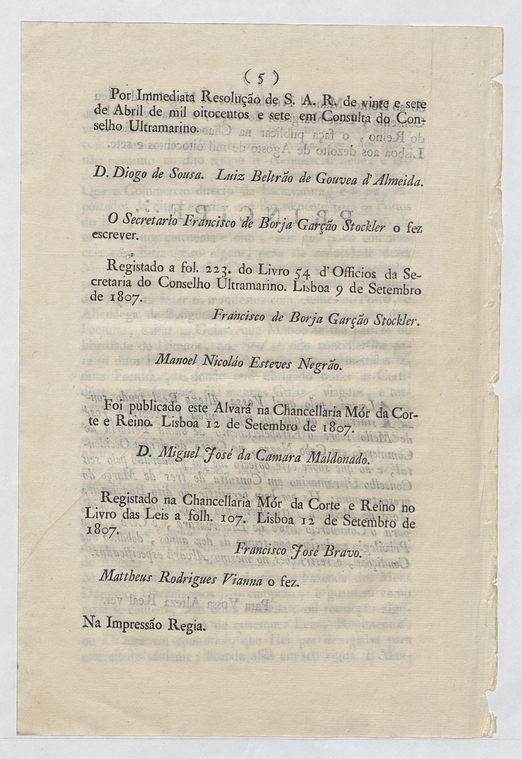 ( 5 )
Por Immediata Resolução de S. A. R. de vinte e sete
de Abril de mil oitocentos e sete em Consulta do Con-
selho Ultramarino.
D. Diogo de Sousa. Luiz Beltrão de Gouvea d'Almeida.
O Secretario Francisco de Borja Garção Stockler o fez
escrever.
Registado a fol. 223. do Livro 54 d'Officios da Se-
cretaria do Conselho Ultramarino. Lisboa 9 de Setembro
de 1807.
Francisco de Borja Garção Stockler.
Manoel Nicoláo Esteves Negrão.
Foi publicado este Alvará na Chancellaria Mór da Cor-
te e Reino. Lisboa 12 de Setembro de 1807.
D. Miguel José da Camara Maldonado.
Registado na Chancellaria Mór da Corte e Reino no
Livro das Leis a folh. 107. Lisboa 12 de Setembro de
1807.
Francisco José Bravo.
Mattheus Rodrigues Vianna o fez.
Na Impressão Regia.